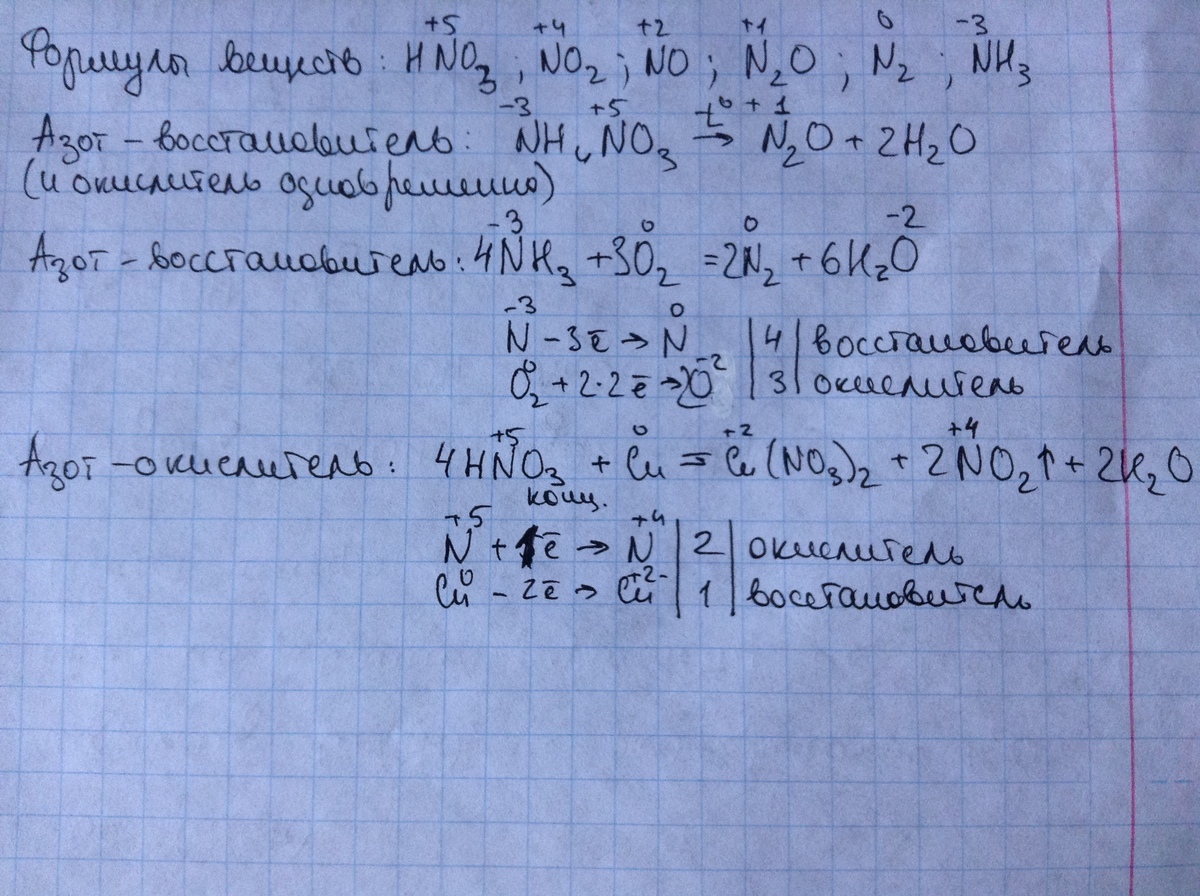 Формулы веществ: HN⁺⁵O₃; N⁺⁴O₂; N⁺²O; N⁺¹₂O; N⁰₂; N⁻³H₃
Азот – восстановитель: N⁻³H₄N⁺⁵O₃ →t° N⁺¹₂O + 2H₂O
(и окислитель одновременно)
Азот – восстановитель: 4N⁻³H₃ + 3O⁰₂ = 2N⁰₂ + 6H₂O⁻²
N⁻³ – 3ē → N⁰ | 4 | восстановитель
O⁰₂ + 2·2ē → 2O⁻² | 3 | окислитель
Азот – окислитель: 4HN⁺⁵O₃ + Cu⁰ = Cu⁺²(NO₃)₂ + 2N⁺⁴O₂↑ + 2H₂O
конц.
N⁺⁵ + 1ē → N⁺⁴ | 2 | окислитель
Cu⁰ – 2ē → Cu⁺² | 1 | восстановитель